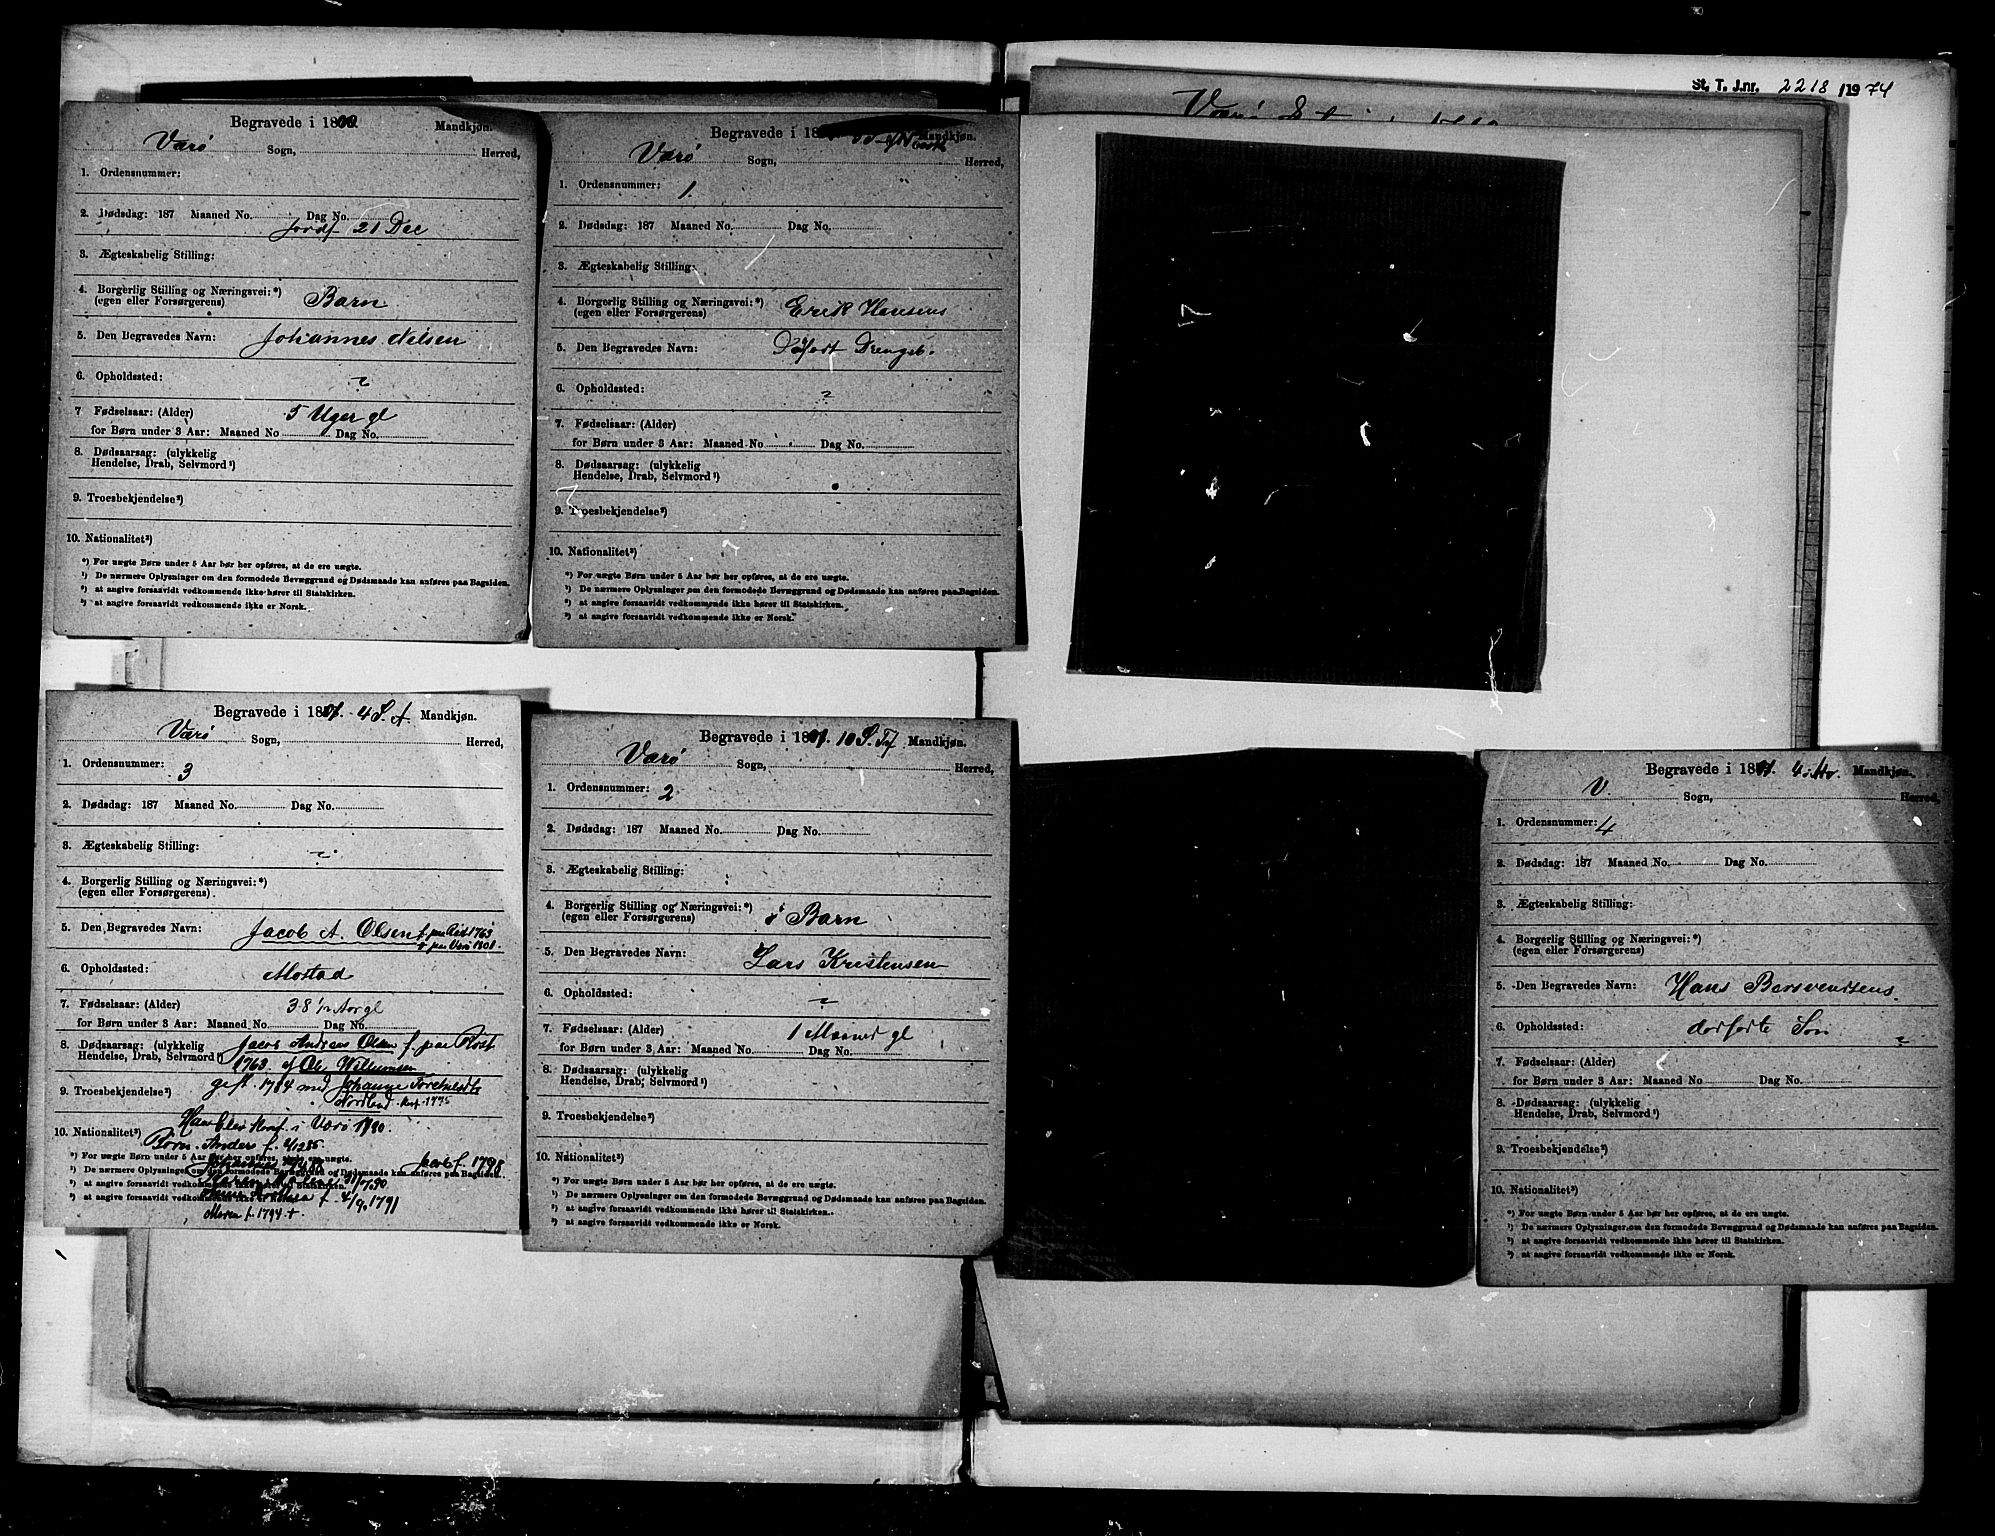 St. T. J.nr. 2218 /1974
Begravede i 1800. Mandkjøn.
Værö Sogn, Herred,
1. Ordensnummer:
2. Dødsdag: 187 Maaned No. Dag No.
Jordf 21 Dec
3. Ægteskabelig Stilling:
4. Borgerlig Stilling og Næringsvei:*)
(egen eller Forsørgerens) Barn
5. Den Begravedes Navn: Johannes Nilsen
6. Opholdssted: ?
7 Fødselsaar: (Alder) 5 Uger gl
for Børn under 3 Aar: Maaned No Dag No.
8. Dødsaarsag: (ulykkelig
Hendelse, Drab, Selvmord ¹)
9. Troesbekjendelse²)
10. Nationalitet³)
*) For uægte Børn under 5 Aar bør her opføres, at de ere uægte.
¹) De nærmere Oplysninger om den formodede Bevæggrund og Dødsmaade kan anføres paa Bagsiden.
²) at angive forsaavidt vedkommende ikke hører til Statskirken.
³) at angive forsaavidt vedkommende ikke er Norsk.
Begravede i 18 Mandkjøn.
Værö Sogn, Herred,
1. Ordensnummer: 1.
2. Dødsdag: 187 Maaned No. Dag No.
3. Ægteskabelig Stilling:
4. Borgerlig Stilling og Næringsvei:*) Erik Hansens
(egen eller Forsørgerens)
5. Den Begravedes Navn: Drengeb.
6. Opholdssted: ?
7. Fødselsaar: (Alder)
for Børn under 3 Aar: Maaned No Dag No.
8. Dødsaarsag: (ulykkelig
Hendelse, Drab, Selvmord ¹)
9. Troesbekjendelse²)
10. Nationalitet³)
*) For uægte Børn under 5 Aar bør her opføres, at de ere uægte.
¹) De nærmere Oplysninger om den formodede Bevæggrund og Dødsmaade kan anføres paa Bagsiden.
²) at angive forsaavidt vedkommende ikke hører til Statskirken.
³) at angive forsaavidt vedkommende ikke er Norsk.
Begravede i 1801. 4 S. A. Mandkjøn.
Værö Sogn, Herred,
1. Ordensnummer: 3
2. Dødsdag: 187 Maaned No. Dag No.
3. Ægteskabelig Stilling: ?
4. Borgerlig Stilling og Næringsvei:*)
(egen eller Forsørgerens)
5. Den Begravedes Navn: Jacob A. Olsen f. paa Röst 1763
+ paa Værö 1801.
6. Opholdssted: Mostad
7. Fødselsaar: (Alder) 38 ½ Aar gl
for Børn under 3 Aar: Maaned No. Dag No.
8. Dødsaarsag: (ulykkelig Jacob Andreas Olsen f. paa Röst
Hendelse, Drab, Selvmord ¹) 1763 af Ole Willumsen
gift. 1784 med
9. Troesbekjendelse²) Nordland
Han blev Konf. i Værö 1780.
10. Nationalitet³) Börn. Anders f.
*) For uægte Børn under 5 Aar bør her opføres, at de ere uægte.
Johannes Jacob f. 1798
¹) De nærmere Oplysninger om den formodede Bevæggrund og Dødsmaade kan anføres paa Bagsiden.
²) at angive forsaavidt vedkommende ikke hører til Statskirken.
³) at angive forsaavidt vedkommende ikke er Norsk. f. 4/9.1791
Maren f. 1794 +.
Begravede i 1801. 10 S. Tf Mandkjøn.
Værö Sogn, Herred,
1. Ordensnummer: 2
2. Dødsdag: 187 Maaned No. Dag No.
3. Ægteskabelig Stilling:
4. Borgerlig Stilling og Næringsvei:*)
(egen eller Forsørgerens) Barn
5. Den Begravedes Navn: Lars Kristensen
6. Opholdssted: ?
7. Fødselsaar: (Alder) 1 Maaned gl
for Børn under 3 Aar: Maaned No. Dag No.
8. Dødsaarsag: (ulykkelig
Hendelse, Drab, Selvmord ¹)
9. Troesbekjendelse²)
10. Nationalitet³)
*) For uægte Børn under 5 Aar bør her opføres, at de ere uægte.
¹) De nærmere Oplysninger om den formodede Bevæggrund og Dødsmaade kan anføres paa Bagsiden.
²) at angive forsaavidt vedkommende ikke hører til Statskirken.
³) at angive forsaavidt vedkommende ikke er Norsk.
Begravede i 1801. Mandkjøn.
V. Sogn, Herred,
1. Ordensnummer: 4
2. Dødsdag: 187 Maaned No. Dag No.
3. Ægteskabelig Stilling:
4. Borgerlig Stilling og Næringsvei:*)
(egen eller Forsørgerens)
5. Den Begravedes Navn: Hans Bersvendsens
6. Opholdssted: dødfødte Sön ?
7. Fødselsaar: (Alder)
for Børn under 3 Aar: Maaned No Dag No.
8. Dødsaarsag: (ulykkelig
Hendelse, Drab, Selvmord ¹)
9. Troesbekjendelse²)
10. Nationalitet³)
*) For uægte Børn under 5 Aar bør her opføres, at de ere uægte.
¹) De nærmere Oplysninger om den formodede Bevæggrund og Dødsmaade kan anføres paa Bagsiden.
²) at angive forsaavidt vedkommende ikke hører til Statskirken.
³) at angive forsaavidt vedkommende ikke er Norsk.